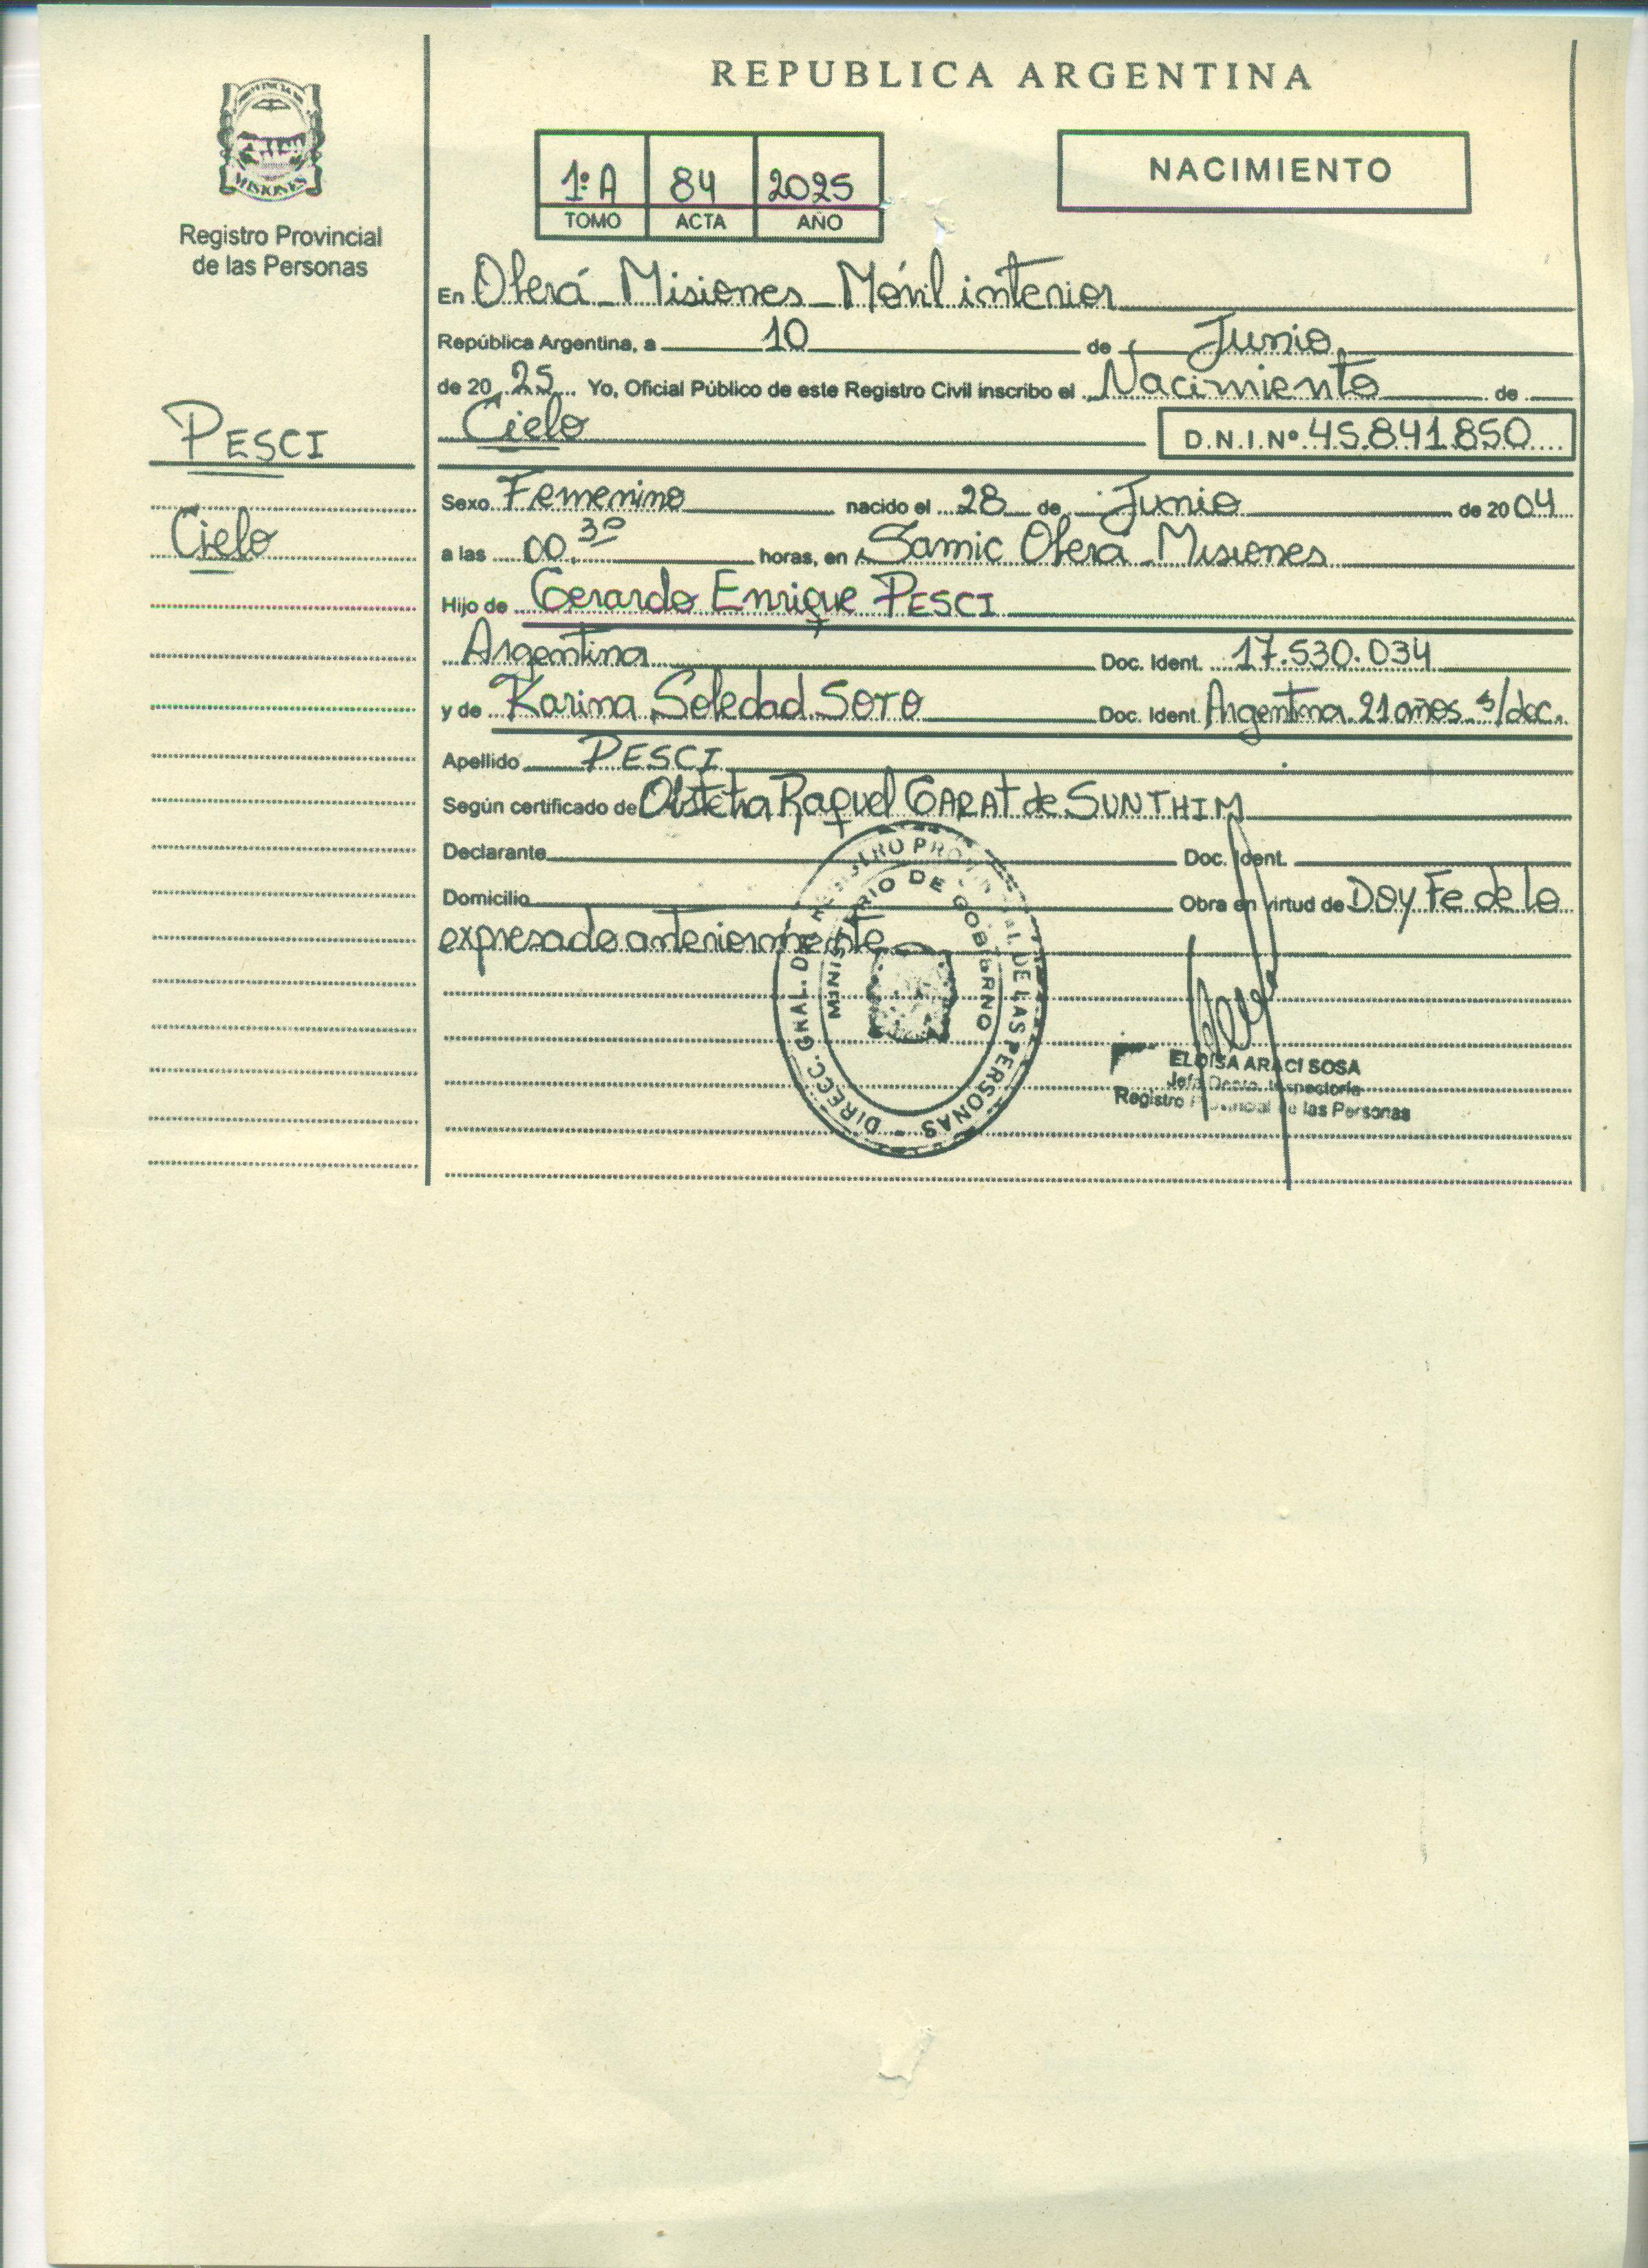 REPUBLICA ARGENTINA
PROVINCIA DE
MISIONES
Registro Provincial
de las Personas
1º A 84 2025
TOMO ACTA AÑO
NACIMIENTO
En Oberá - Misiones - Móvil interior
República Argentina, a 10 de Junio
de 20 25 Yo, Oficial Público de este Registro Civil inscribo el Nacimiento de
Cielo D.N.I.Nº 45.841.850
PESCI
Cielo
Sexo Femenino nacido el 28 de Junio de 20 04
a las 00.30 horas, en Samic Oberá - Misiones
Hijo de Gerardo Enrique PESCI
Argentina Doc. Ident. 17.530.034
y de Karina Soledad SOTO Doc. Ident Argentina. 21 años s/doc.
Apellido PESCI
Según certificado de Obstetra Raquel GARAT de SUNTHIM
Declarante Doc. Ident.
Domicilio Obra en virtud de Doy Fe de lo
expresado anteriormente
DIRECC. GRAL. DEL REGISTRO PROVINCIAL DE LAS PERSONAS -
MINISTERIO DE GOBIERNO
ELOISA ARACI SOSA
Jefa Depto. Inspectoría
Registro Provincial de las Personas